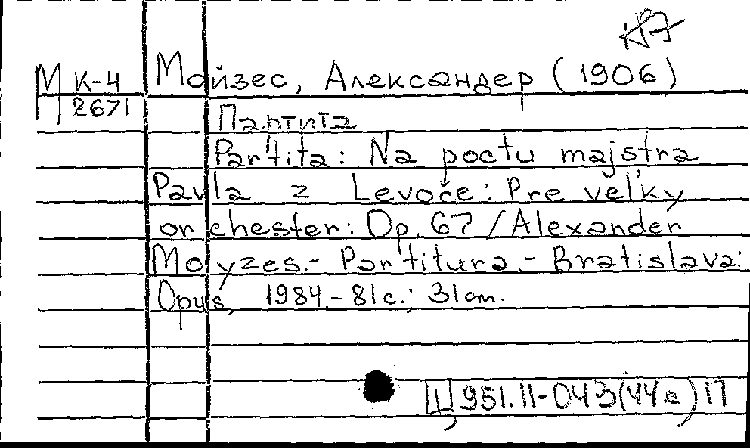 М К-4 Мойзес, Александер (1906)
П 2671
Партита
Partita: Na poctu majstra
Pavla z Levoče: Pre veľky
orchester: Op. 67 / Alexander
Moyzes.- Partitura.- Bratislava:
Opus, 1984 - 81 c.; 31 cm.
Ц 951.11-043(44а)П